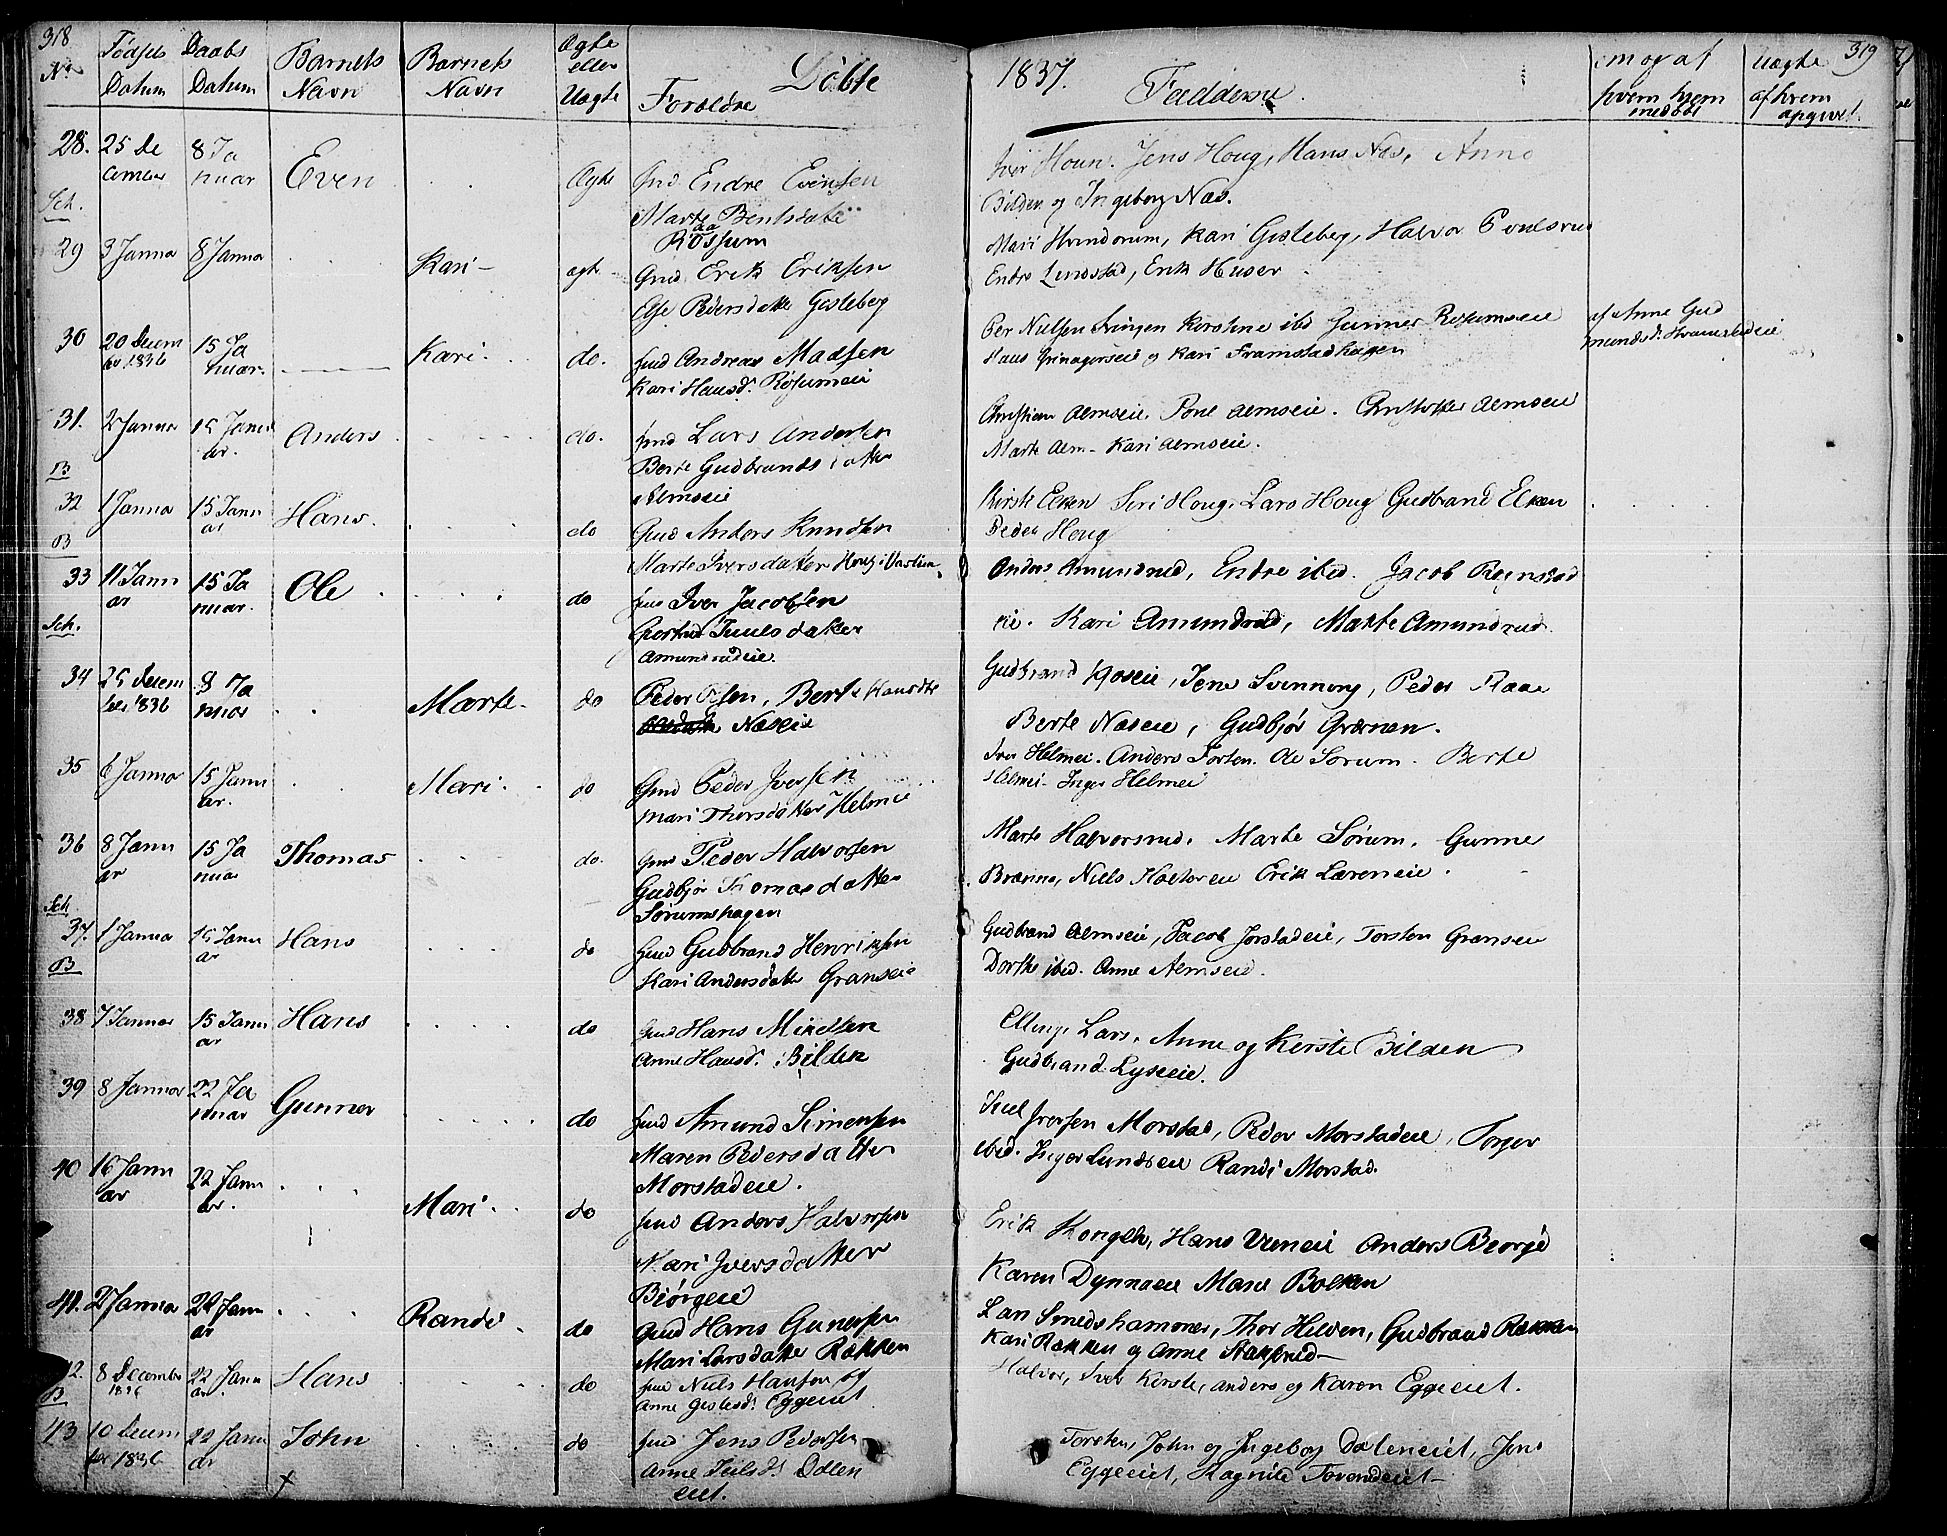 318
No
Fødsels Datum
Daabs Datum
Barnets Navn
Barnets Navn
Ægte eller Uægte
Forældre
Døbte
1837.
Faddere
319
hvem hjem
medøbt
Uægte
af hvem
opgivet.
28. 25 De 8 Ja Even Ægte Gmd Endre Evensen
cember nuar
Sch. Marte Bentsdatt
Rossum
Iver Houn. Jens Houg, Hans Næs, Anne
Bilden og Ingeborg Næs.
29 3 Januar 8 Januar Kari ægt. Gmd Erik Eriksen
Else Pedersdatter Gisleberg
Mari Hvindorum, Kari Gisleberg, Halvor
Endre Lindstad, Erik Huser
30 20 Decem 15 Ja Kari do. Gmd Andreas Madsen
ber 1836 nuar.
Kari Hansd. Røsumeie
Per Nielsen Kerstine ibd Gunner Røsumeie
Hans og Kari Framstadhagen
af Anne Gud
mundsd.
31. 2 Januar 15 Janu Anders do. Gmd Lars Andersen
ar.
B Berte Gudbrandsdatter
Almseie
Christian Almseie. Poul Almseie. Christoffer Almseie
Marte Alm - Kari Almseie.
32 1 Januar 15 Janu Hans. do Gmd Anders Knudsen
ar
B Marte Iversdatter Houg
Kirsti Elken Siri Houg. Lars Houg Gudbrand Elken
Peder Houg
33 11 Janu 15 Ja Ole do Gmd Iver Jacobsen
ar nuar.
Sch. Gjertrud Juulsdatter
Amundrudeie.
Anders Amundrud, Endre ibed. Jacob Røgnstad
eie. Kari Amundrud, Marte Amundrud.
34 25 Decem 8 Ja Marte do Peder Olsen, Berte Hansdtr
ber 1836 nuar
Næseie
Gudbrand Moseie, Jens Svenning, Peder Raae
Berte Næseie, Gudbjør Grænen.
35 6 Januar 15 Janu Mari. do Gmd Peder Iversen
ar.
Mari Thorsdatter Helmeie
Iver Helmei. Anders Torten. Ole Sørum. Berte
Helmei. Inger Helmei
36 8 Janu 15 Ja Thomas do. Gmd Peder Halvorsen
ar nuar
Gudbjør Thomasdatter
Sch. Sørumshagen
Marte Halvorsrud. Marte Sørum. Gunner
Brænna, Niels Holtoreie Erik Læreneie.
37. 1 Januar 15 Janu Hans do Gmd Gudbrand Henriksen
ar
B Kari Andersdatter Granseie
Gudbrand Almseie, Jacob Jorstadeie, Torsten Granseie
Dorthe ibed. Anne Almseie.
38 7 Januar 15 Janu Hans do Gmd Hans Mikelsen
ar
Anne Hansd. Bilden
Elling, Lars, Anne og Kerste Bilden
Gudbrand Lyseeie.
39 8 Januar 22 Ja Gunner do Gmd Amund Simensen
nuar
Maren Pedersdatter
Morstadeie.
Juel Iversen Morstad, Peder Morstadeie, Torger
ibed. Inger Lundseie Randi Morstad.
40 16 Janu 22 Janu Mari. do Gmd Anders Halvorsen
ar ar.
Kari Iversdatter
Biørgeie
Erik Kongelh, Hans Vieneie Anders Beorge
Karen Dynnaeie Marie Boelken
41. 2 Januar 22 Janu Randi do Gmd Hans Gunersen
ar
Mari Larsdatter Rækken
Lars Smedshammer, Thor Hilden, Gudbrand Rækken
Kari Rækken og Anne Stakkerud
42. 8 December 22 Janu Hans do Gmd Niels Hansen og
1836 ar
B Anne Gislesd. Eggeeiet
Halvor, Iver, Kerste, Anders og Karen Eggeeiet.
43 10 Decem 22 Janu John do Gmd Jens Pedersen
ber 1836 ar
Anne Juelsd. Dølen
eiet.
Torsten, John og Ingeborg Døleneiet, Jens
Eggeeiet, Ragnild